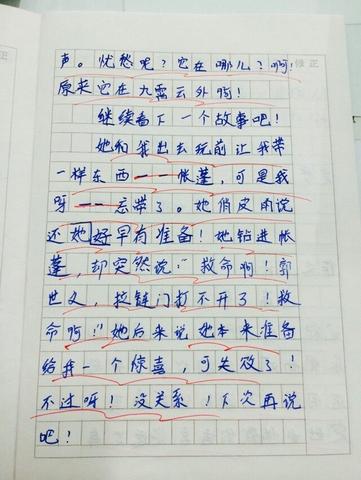 声。忧愁呢？它在哪儿？啊！
修正
原来它在九霄云外啊！
继续看下一个故事吧！
她们我出去玩前让我带
一样东西——帐蓬，可是我
呀——忘带了。她俏皮的说
还她好早有准备！她钻进帐
蓬，却突然说：“救命啊！郭
世义，拉链门打不开了！救
命啊！”她后来说她本来准备
给我一个惊喜，可失败了！
不过呀！没关系！下次再说
吧！